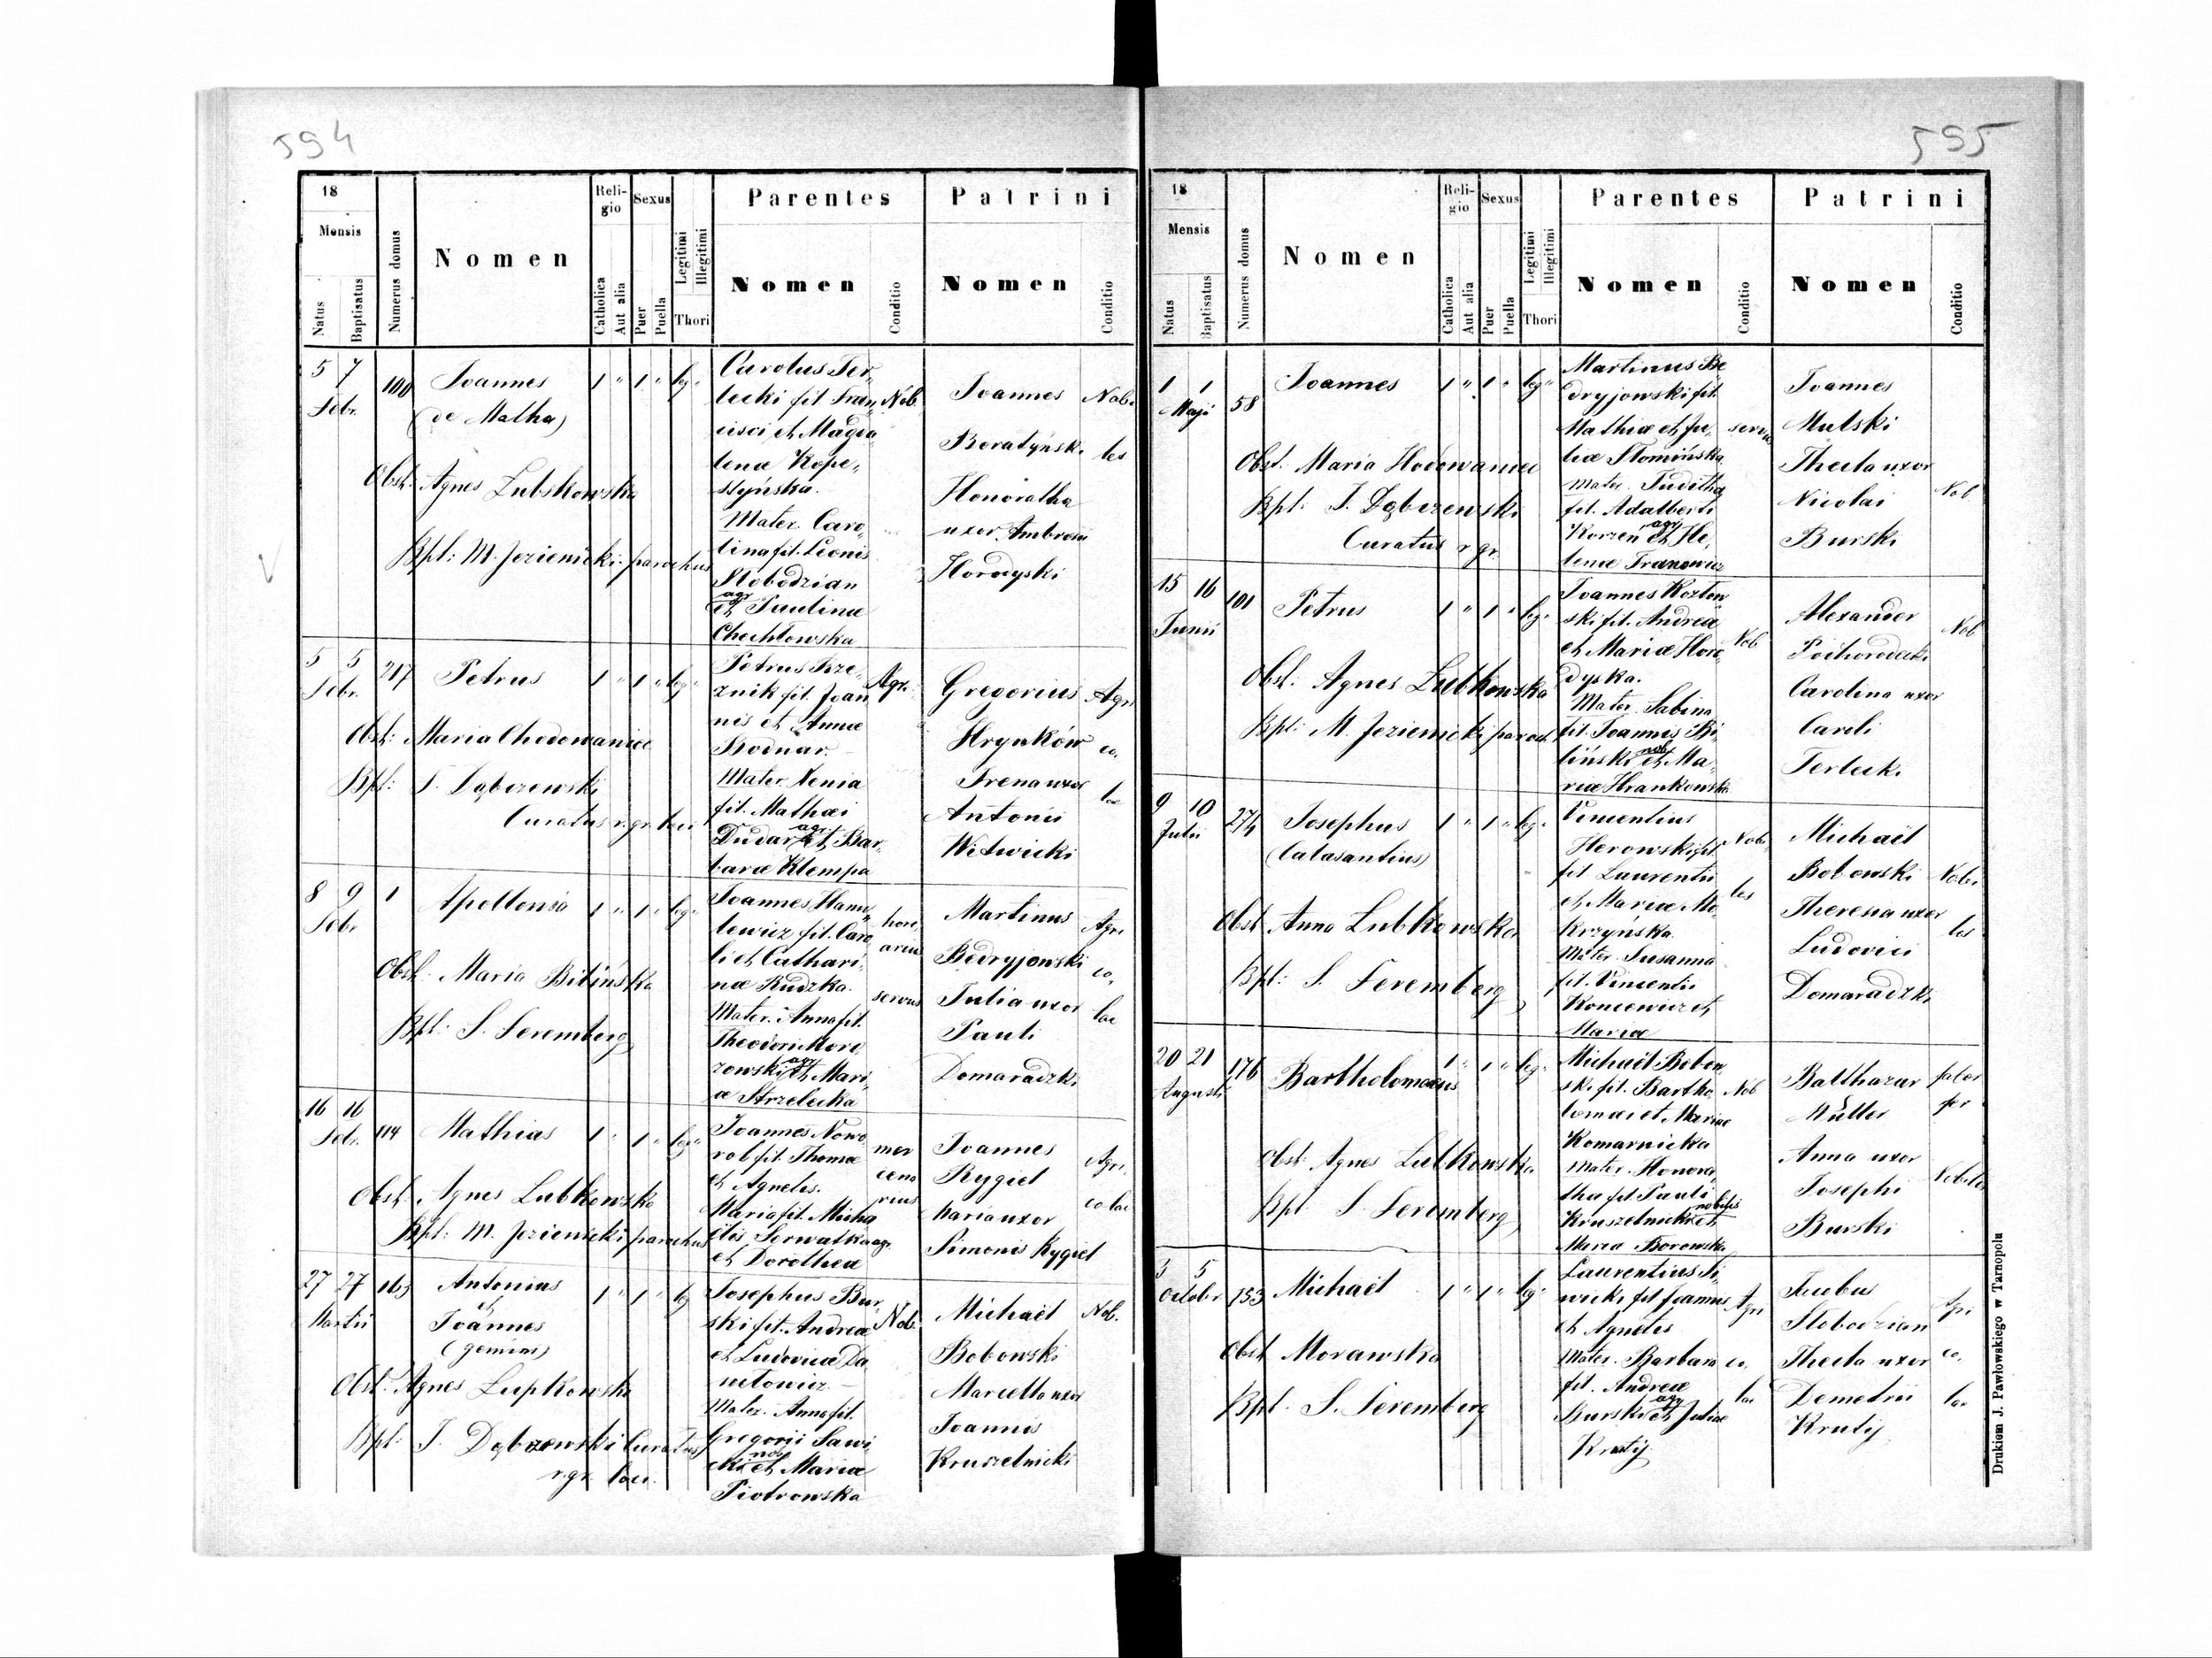 594
18
Mensis
Natus
Baptisatus
Numerus domus
Nomen
Reli-
gio
Catholica
Aut alia
Sexus
Puer
Puella
Legitimi
Illegitimi
Thori
Parentes
Nomen
Conditio
Patrini
Nomen
Conditio
5 7
Febr.
100
Joannes
(de Matha)
1 " 1 " leg "
Obst: Agnes Lubkowska
Bpt: M. Jezienicki parochus
Carolus Ter,
lecki fil. Fran,
cisci et Magda
lenæ Kope,
styńska.
Mater. Caro,
lina fil. Leonis
Slobodzian
agr
et Paulinæ
Chechłowska
Nob.
Joannes
Boratyński
Honoratha
uxor Ambrosii
Horodyski
Nobi
les
5 5
Febr.
217
Petrus
1 " 1 " leg "
Obst: Maria Chodowaniec
Bpt: J. Dąbczewski
Curatus r. gr. loci
Petrus
znik fil. Joan
nis et Annæ
Bodnar.
Mater Xenia
fil. Mathæi
agr
Dudar et Bar,
baræ Klempa
Agr.
Gregorius
Hrynków
Irena uxor
Antonii
Witwicki
Agri
co,
læ
8 9
Febr
1
Apollonia
1 " 1 " leg "
Obst: Maria Bilińska
Bpt: S. Seremberg
Joannes Hanu,
lewicz fil. Caro
li et Cathari,
næ Rudzka.
Mater. Anna fil.
Theodori Moro,
agr
zowski et Mari,
æ Strzelecka
servus
Martinus
Bedryjowski
Julia uxor
Pauli
Domaradzki
Agri
co,
læ
16 16
Febr.
114
Mathias
1 " 1 " leg "
Obst: Agnes Lubkowska
Bpt: M. Jezienicki parochus
Joannes Nowo
rol fil. Thomæ
et Agnetis.
Maria fil. Micha
ëlis Serwatka agr.
et Dorotheæ
mer
cena
rius
Joannes
Rygiel
Maria uxor
Simonis Rygiel
Agri,
co læ
27 27
Martii
163
Antonius
et
Joannes
(gemini)
1 " 1 " leg
Obst: Agnes Lupkowska
Bpt: J. Dąbczewski Curatus
r. gr. loci.
Josephus Bur,
ski fil. Andreæ
et Ludovicæ Da
nitowicz
Mater. Anna fil.
Gregorii Sawi
nob
cki et Mariæ
Piotrowska
Nob.
Michaël
Bobowski
Marcella uxor
Joannis
Kruszelnicki
Nob.
595
18
Mensis
Natus
Baptisatus
Numerus domus
Nomen
Reli-
gio
Catholica
Aut alia
Sexus
Puer
Puella
Legitimi
Illegitimi
Thori
Parentes
Nomen
Conditio
Patrini
Nomen
Conditio
1 1
Maji
58
Joannes
1 " 1 " leg "
Obst: Maria Hodowaniec
Bpt: J. Dąbczewski
Curatus r. gr.
Martinus Be
dryjowski fil.
Mathiæ et Ju,
liæ Słomińska
Mater. Juditha
fil. Adalberti
agr
Korzeń et He,
lenæ Franowicz
servus
Joannes
Mulski
Thecla uxor
Nicolai
Burski
Nob
15 16
Junii
101
Petrus
1 " 1 " leg "
Obst: Agnes Lubkowska
Bpt: M. Jezienicki paroch
Joannes Kozłow
ski fil. Andreæ
et Mariæ Horo
dyska.
Mater. Sabina
fil. Joannis Bi,
nob
liński et Ma,
riæ Hrankowska
Nob
Alexander
Poihorodecki
Carolina uxor
Caroli
Terlecki
Nob
9 10
Julii
274
Josephus
(Calasantius)
1 " 1 " leg "
Obst: Anna Lubkowska
Bpt: S. Seremberg
Vincentius
Herowski fil
fil Laurentii
et Mariæ Mo,
krzyńska.
Mater. Susanna
fil. Vincentii
Koniewicz et
Mariæ
Nobi,
les
Michaël
Bobowski
Theresia uxor
Ludovici
Domaradzki
Nobi
les
20 21
Augusti
176
Bartholomaeus
1 " 1 " leg "
Obst: Agnes Lubkowska
Bpt S. Seremberg
Michaël Bobow
ski fil. Bartho,
lomæi et Mariæ
Komarnicka
Mater. Honora,
tha fil Pauli
nobilis
Kruszelnicki et
Mariæ Borowska
Nob
Balthazar
Müller
Anna uxor
Josephi
Burski
faber
fer
Nobiles
3 5
October
153
Michaël
1 " 1 " leg "
Obst Morawska
Bpt. S. Seremberg
Laurentius Si,
wicki fil Joannis
et Agnetis
Mater. Barbara
fil. Andreæ
agr
Burski et Juliæ
Krutij
Agri
co,
læ
Jacobus
Slobodzian
Thecla uxor
Demetrii
Krutij
Agri
co,
læ
Drukiem J. Pawłowskiego w Tarnopolu